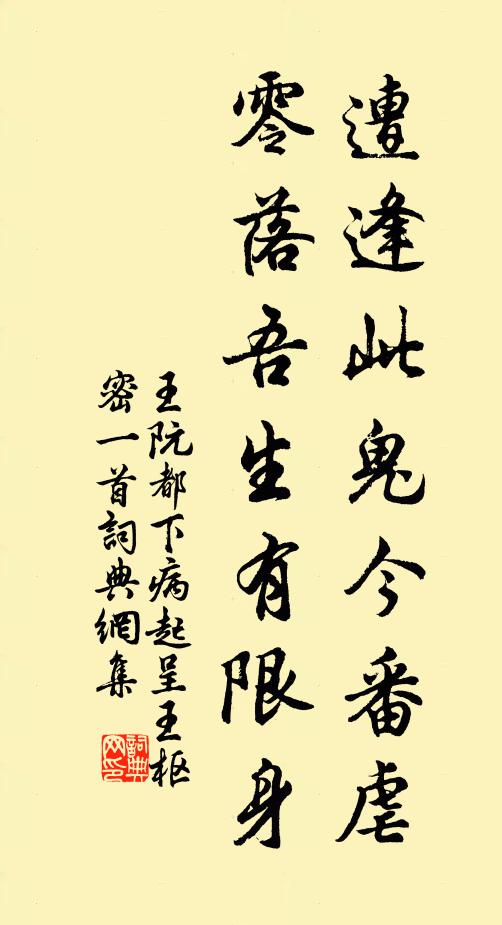 遭逢此鬼今番虐
零落吾生有限身
王阮都下病起呈王枢
密一首詞典網集
詞典網印